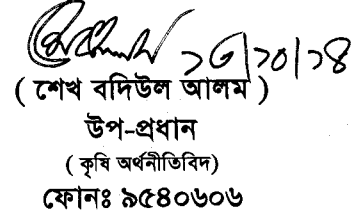 ১৩/১০/১৪
( শেখ বদিউল আলম )
উপ-প্রধান
( কৃষি অর্থনীতিবিদ)
ফোনঃ ৯৫৪০৬০৬